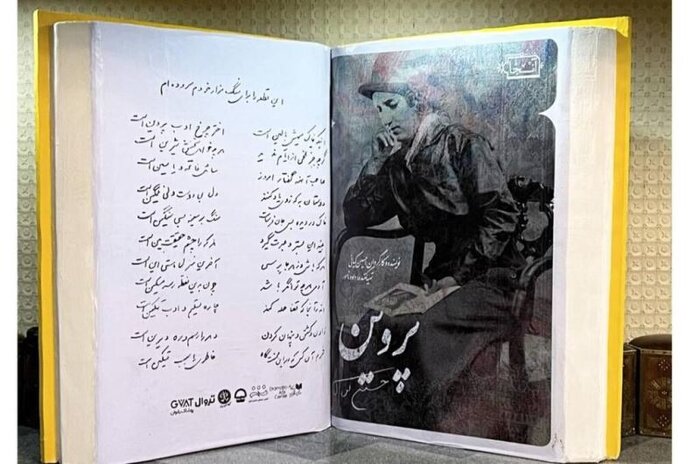 این قطعه را برای سنگ مزار خودم سروده ام
اینکه خاک سیهش بالین است اختر چرخ ادب پروین است
گر چه جز تلخی از ایام ندید هر چه خواهی سخنش شیرین است
صاحب آنهمه گفتار امروز سائل فاتحه و یاسین است
دوستان به که ز وی یاد کنند دل بی دوست دلی غمگین است
خاک در دیده بسی جان فرساست سنگ بر سینه بسی سنگین است
بیند این بستر و عبرت گیرد هر که را چشم حقیقت بین است
هر که باشی و ز هر جا برسی آخرین منزل هستی این است
آدمی هر چه توانگر باشد چون بدین نقطه رسد مسکین است
اندر آنجا که قضا حمله کند چاره تسلیم و ادب تمکین است
زادن و کشتن و پنهان کردن دهر را رسم و ره دیرین است
خرم آن کس که در این محنتگاه خاطری را سبب تسکین است
GVAT تروال
نویسنده و کارگردان: حسین کیانی
پروین